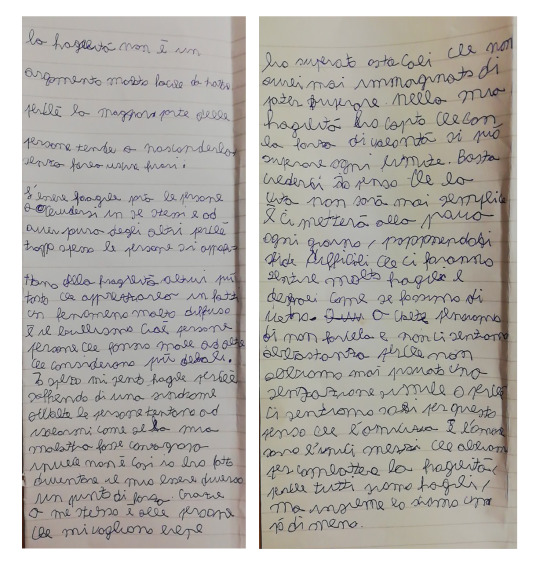 la fragilità non è un
argomento molto facile da trattare
perché la maggiora parte delle
persone tende a nasconderla
senza farla uscire fuori.
L'essere fragile può le persone
a chiudersi in se stessi e ad
aver paura degli altri perché
troppo spesso le persone si approfit-
tano della fragilità altrui più
tosto che apprezzarla in fatti
un fenomeno molto diffuso
è il bullismo cioè persone
persone che fanno male ad altre
che considerano più deboli.
Io spesso mi sento fragile perché
soffrendo di una sindrome
a volte le persone tentano ad
come se la mia
malattia fosse contagiosa
invece non è così io ho fatto
diventare il mio essere diverso
un punto di forza. Grazie
a me stesso e alle persone
che mi vogliono bene
ho superato ostacoli che non
avrei mai immaginato di
poter superare. Nella mia
fragilità ho capito che con
la forza di volontà si può
superare ogni limite. Basta
crederci io penso che la
vita non sarà mai semplice
E ci metterà alla prova
ogni giorno, proponendoci
sfide difficili che ci faranno
sentire molto fragili e
deboli come se fossimo di
vetro. A volte penseremo
di non farcela e non ci sentiamo
abbastanza perché non
abbiamo mai provato una
sensazione simile o perché
ci sentiamo soli per questo
penso che l'amicizia e l'amore
sono l'unici mezzi che abbiamo
per combattere la fragilità,
perché tutti siamo fragili,
ma insieme lo siamo un
pò di meno.